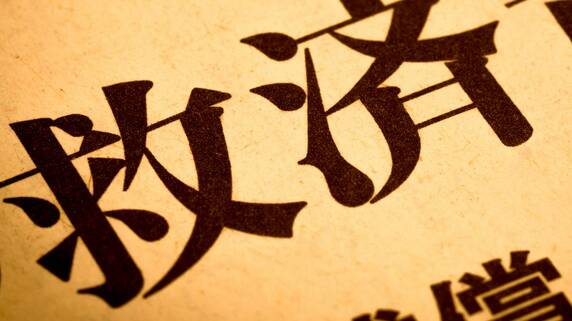 救済
償